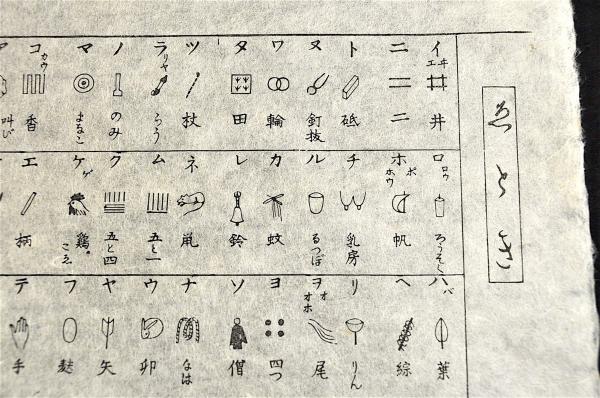 ゑとき
イ ヰ エ 井
ニ 二
ト 砥
ヌ 釘抜
ワ 輪
タ 田
ツ 杖
ラ らう
ノ のみ
マ まなこ
コ カウ 香
叫び
ロ ロウ ろうそく
ホ ボ ホウ 帆
チ 乳房
ル るつぼ
カ 蚊
レ 鈴
ネ 鼡
ム 五と一
ク 五と四
ケ ゲ 鶏 こゑ
エ 柄
ハ バ 葉
ヘ 綜
リ りん
ヲ オ オホ 尾
ヨ 四つ
ソ 僧
ナ なは
ウ 卯
ヤ 矢
フ 麩
テ 手